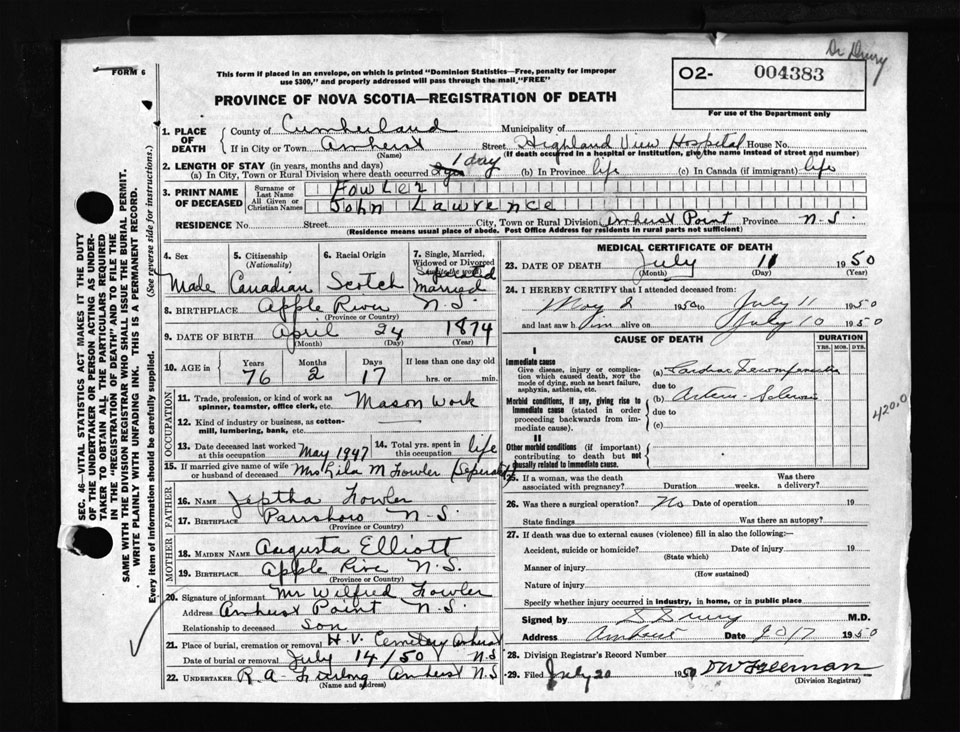 Dr Drury
FORM 6
This form if placed in an envelope, on which is printed "Dominion Statistics—Free, penalty for improper
use $300," and properly addressed will pass through the mail "FREE"
O2- 004383
PROVINCE OF NOVA SCOTIA—REGISTRATION OF DEATH
For use of the Department only
SEC. 46—VITAL STATISTICS ACT MAKES IT THE DUTY
OF THE UNDERTAKER OR PERSON ACTING AS UNDER-
TAKER TO OBTAIN ALL THE PARTICULARS REQUIRED
IN THE "REGISTRATION OF DEATH" AND TO FILE THE
SAME WITH THE DIVISION REGISTRAR WHO SHALL ISSUE THE BURIAL PERMIT.
WRITE PLAINLY WITH UNFADING INK. THIS IS A PERMANENT RECORD.
Every item of information should be carefully supplied. (See reverse side for instructions.)
1. PLACE OF DEATH
County of Cumberland Municipality of
If in City or Town Amherst Street Highland View Hospital House No.
(Name) (If death occurred in a hospital or institution, give the name instead of street and number)
2. LENGTH OF STAY (in years, months and days)
(a) In City, Town or Rural Division where death occurred 1 day (b) In Province life (c) In Canada (if immigrant) life
3. PRINT NAME OF DECEASED
Surname or Last Name Fowler
All Given or Christian Names John Lawrence
RESIDENCE No. Street City, Town or Rural Division Amherst Point Province N-S.
(Residence means usual place of abode. Post Office Address for residents in rural parts not sufficient)
4. Sex Male
5. Citizenship (Nationality) Canadian
6. Racial Origin Scotch
7. Single, Married, Widowed or Divorced Married
8. BIRTHPLACE Apple River N-S.
(Province or Country)
9. DATE OF BIRTH April 24 1874
(Month) (Day) (Year)
10. AGE in Years Months Days If less than one day old
76 2 17 hrs. or min.
OCCUPATION
11. Trade, profession, or kind of work as
spinner, teamster, office clerk, etc. Mason Work
12. Kind of industry or business, as cotton-
mill, lumbering, bank, etc.
13. Date deceased last worked
at this occupation May 1947
14. Total yrs. spent in
this occupation life
15. If married give name of wife
or husband of deceased Mrs Lila M Fowler
FATHER
16. NAME Jeptha Fowler
17. BIRTHPLACE Parrsboro N-S.
(Province or Country)
MOTHER
18. MAIDEN NAME Augusta Elliott
19. BIRTHPLACE Apple River N.S.
(Province or Country)
20. Signature of informant Mr Wilfred Fowler
Address Amherst Point N-S.
Relationship to deceased Son
21. Place of burial, cremation or removal H.V. Cemetery Amherst
Date of burial or removal July 14/50 N-S
22. UNDERTAKER R. A. Furlong Amherst N-S
(Name and address)
MEDICAL CERTIFICATE OF DEATH
23. DATE OF DEATH July 11 1950
(Month) (Day) (Year)
24. I HEREBY CERTIFY that I attended deceased from:
May 8 1950 to July 11 1950
and last saw him alive on July 10 1950
CAUSE OF DEATH DURATION
YRS. MOS. DYS.
I
Immediate cause
Give disease, injury or complica-
tion which caused death, not the
mode of dying, such as heart failure,
asphyxia, asthenia, etc.
(a) Cardiac Decompensation
due to
Morbid conditions, if any, giving rise to
Immediate cause (stated in order
proceeding backwards from im-
mediate cause).
(b)
due to
(c)
420.0
II
Other morbid conditions (if important)
contributing to death but not
causally related to immediate cause.
25. If a woman, was the death
associated with pregnancy? Duration weeks. Was there a delivery?
26. Was there a surgical operation? No Date of operation 19
State findings Was there an autopsy?
27. If death was due to external causes (violence) fill in also the following:—
Accident, suicide or homicide? Date of injury 19
(State which)
Manner of injury
(How sustained)
Nature of injury
Specify whether injury occurred in industry, in home, or in public place
Signed by Drury M.D.
Address Amherst Date 20/7 1950
28. Division Registrar's Record Number
29. Filed July 20 1950 DW Freeman
(Division Registrar)